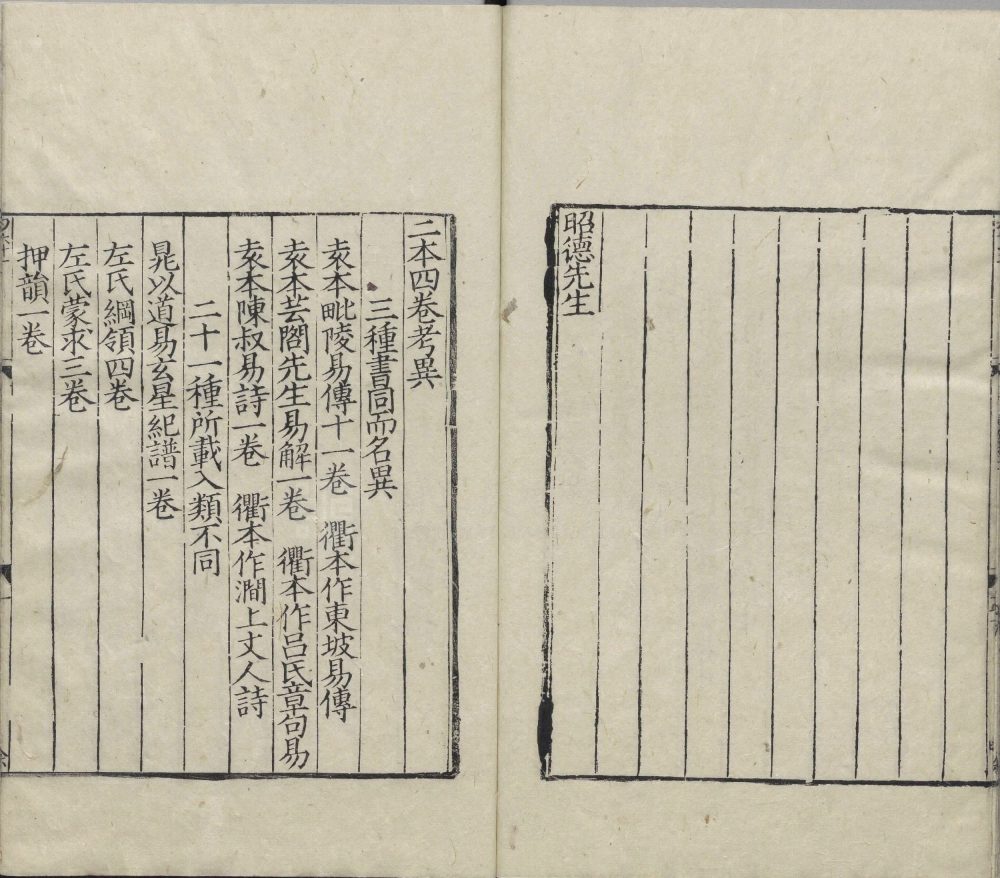 昭德先生
二本四卷考異
三種書同而名異
袁本毗陵易傳十一卷　衢本作東坡易傳
袁本芸閣先生易解一卷　衢本作吕氏章句易
袁本陳叔易詩一卷　衢本作澗上丈人詩
二十一種所載入類不同
晁以道易玄星紀譜一卷
左氏綱領四卷
左氏蒙求三卷
押韻一卷